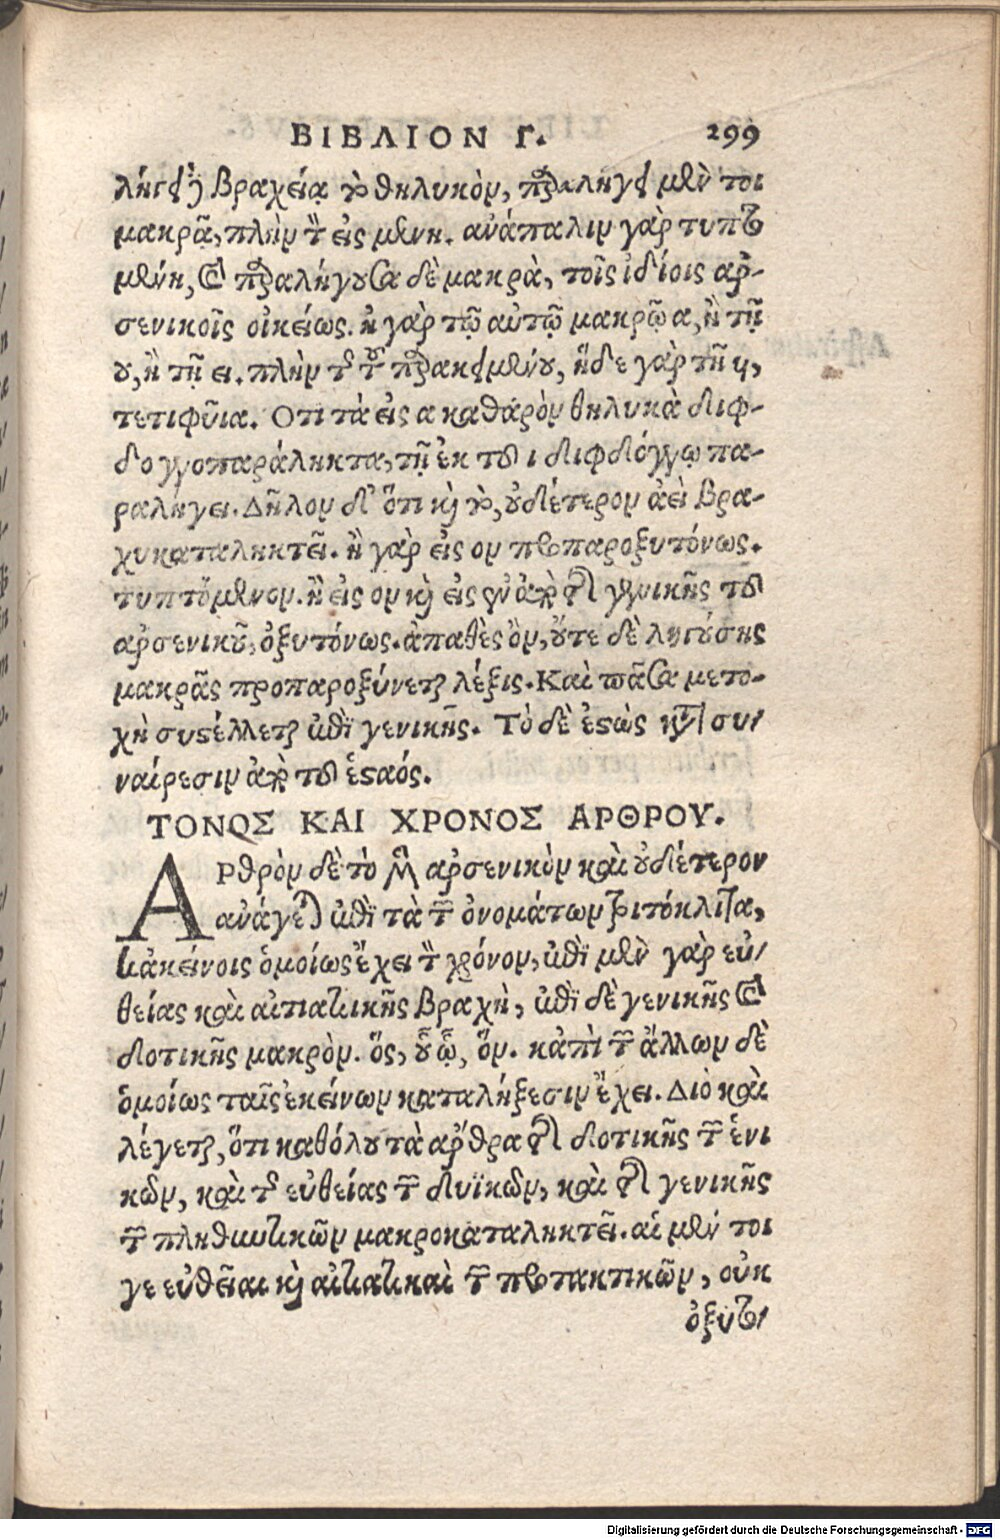 ΒΙΒΛΙΟΝ Γ. 299
λήγει δὲ βραχείᾳ τὸ θηλυκὸν, παραλήγει μέν τοι
μακρᾷ, πλὴν τῶν εἰς μενη. ἀνάπαλιν γὰρ τυπτο
μένη, καὶ παραλήγουσα δὲ μακρὰ, τοῖς ἰδίοις αρ-
σενικοῖς οἰκείως. ἢ γὰρ τῷ αὐτῷ μακρῷ α, ἢ τῇ
ου, ἢ τῇ ει. πλὴν τοῦ παρακειμένου, ἥδε γὰρ τῇ υι,
τετιφυῖα. Οτι τὰ εἰς α καθαρὸν θηλυκὰ διφ-
θογγοπαράληκτα, τῇ ἐκ τοῦ ι διφθόγγῳ πα-
ραλήγει. Δῆλον δ' ὅτι καὶ τὸ, οὐδέτερον ἀεὶ βρα-
χυκαταληκτεῖ. ἢ γὰρ εἰς ον προπαροξυτόνως.
τυπτόμενον. ἢ εἰς ον καὶ εἰς γενικῆς τοῦ
αρσενικοῦ, ὀξυτόνως. ἀπαθὲς ὂν, οὔτε δὲ ληγούσης
μακρᾶς προπαροξύνεται λέξις. Καὶ πᾶσα μετο-
χὴ συστέλλεται ἐπὶ γενικῆς. Τὸ δὲ ἑστὼς κατὰ συ/
ναίρεσιν ἀπὸ τοῦ ἑσταός.
ΤΟΝΟΣ ΚΑΙ ΧΡΟΝΟΣ ΑΡΘΡΟΥ.
ΑΡθρον δὲ τὸ μὲν αρσενικὸν καὶ οὐδέτερον
ανάγεται ἐπὶ τὰ τῶν ὀνομάτων τριτόκλιτα,
κἀκείνοις ὁμοίως ἔχει τὸν χρόνον, ἐπὶ μὲν γὰρ εὐ/
θείας καὶ αἰτιατικῆς βραχὴ, ἐπὶ δὲ γενικῆς καὶ
δοτικῆς μακρὸν. ὅς, οὗ ᾧ, ὅν. κἀπὶ τῶν ἄλλων δὲ
ὁμοίως ταῖς ἐκείνων καταλήξεσιν ἔχει. Διὸ καὶ
λέγεται, ὅτι καθόλου τὰ αρθρα ἐπὶ δοτικῆς τῶν ἑνι
κῶν, καὶ τῆς εὐθείας τῶν δυϊκῶν, καὶ ἐπὶ γενικῆς
τῶν πληθυντικῶν μακροκαταληκτεῖ. αἱ μέν τοι
γε εὐθεῖαι καὶ αἰτιατικαὶ τῶν προτακτικῶν, οὐκ
ὀξυτο/
Digitalisierung gefördert durch die Deutsche Forschungsgemeinschaft - DFG